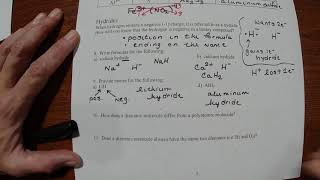 Fe³⁺(NO₂)₃
Hydrides
When hydrogen carries a negative (-1) charge, it is referred to as a hydride
you will know that the hydrogen is negative in a binary compound?
• position in the formula
• ending on the name
wants 2e⁻
·H H⁻
gains 1e⁻
hydride
H⁺ lost 1e⁻
8. Write formulas for the following:
a) sodium hydride
b) calcium hydride
Na⁺ H⁻ NaH
Ca²⁺ H⁻
CaH₂
9. Provide names for the following:
a) LiH
b) AlH₃
pos. neg.
lithium hydride
aluminum hydride
10. How does a diatomic molecule differ from a polyatomic molecule?
11. Does a diatomic molecule always have the same two elements
5